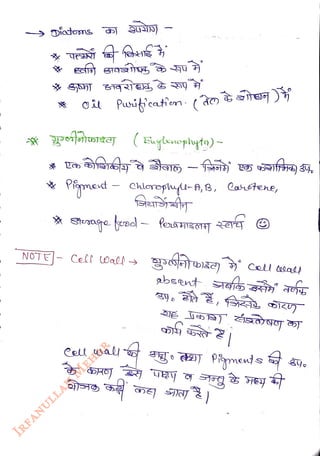 → Diatoms का उपयोग -
* पत्थरों की घिसाई में
* ध्वनि अवशोषक के रूप में
* ऊष्मा अवरोधक के रूप में
* Oil Purification. (तेल के शोधन) में
* युग्लीनोफाइटा (Euglenophyta) -
* एक कोशिकीय व शैवाल - जिनमें एक कशाभिका उप०
* Pigment - Chlorophyll-A,B, Carotene,
जियाजैंथीन
* Storage food - पैरामाइलम स्टार्च ☺
NOTE - Cell Wall → युग्लीनोफाइटा में Cell Wall
absent जबकि इसमें वर्णक
उप० होते हैं, जिसके कारण
यह प्रकाश संश्लेषण का
कार्य करते हैं।
Cell Wall की अनु० तथा Pigments की उप०
के कारण इसे पादप व जन्तु के मध्य की
योजक कड़ी कहा जाता है।
IRFANULLAH MEHAR